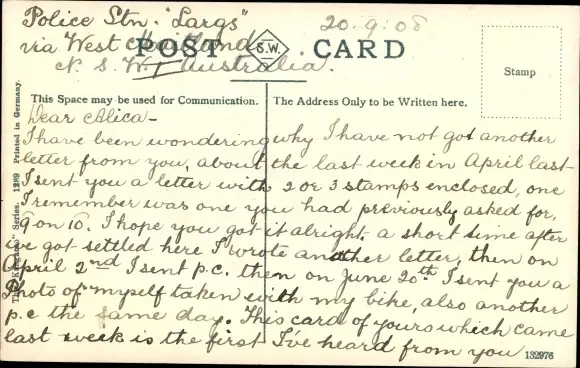 Police Stn. "Largs" 20.9.08
via West Maitland
N. S. W. Australia.
POST S.W. CARD
Stamp
This Space may be used for Communication. The Address Only to be Written here.
Dear Alica -
I have been wondering why I have not got another
letter from you, about the last week in April last
I sent you a letter with 2 or 3 stamps enclosed, one
I remember was one you had previously asked for,
9 on 10. I hope you got it alright. a short time after
ive got settled here I wrote another letter, then on
April 2nd I sent p.c. then on June 20th I sent you a
Photo of myself taken with my bike, also another
p.c the same day. This card of yours which came
last week is the first I've heard from you
132976
Series. 1289 Printed in Germany.